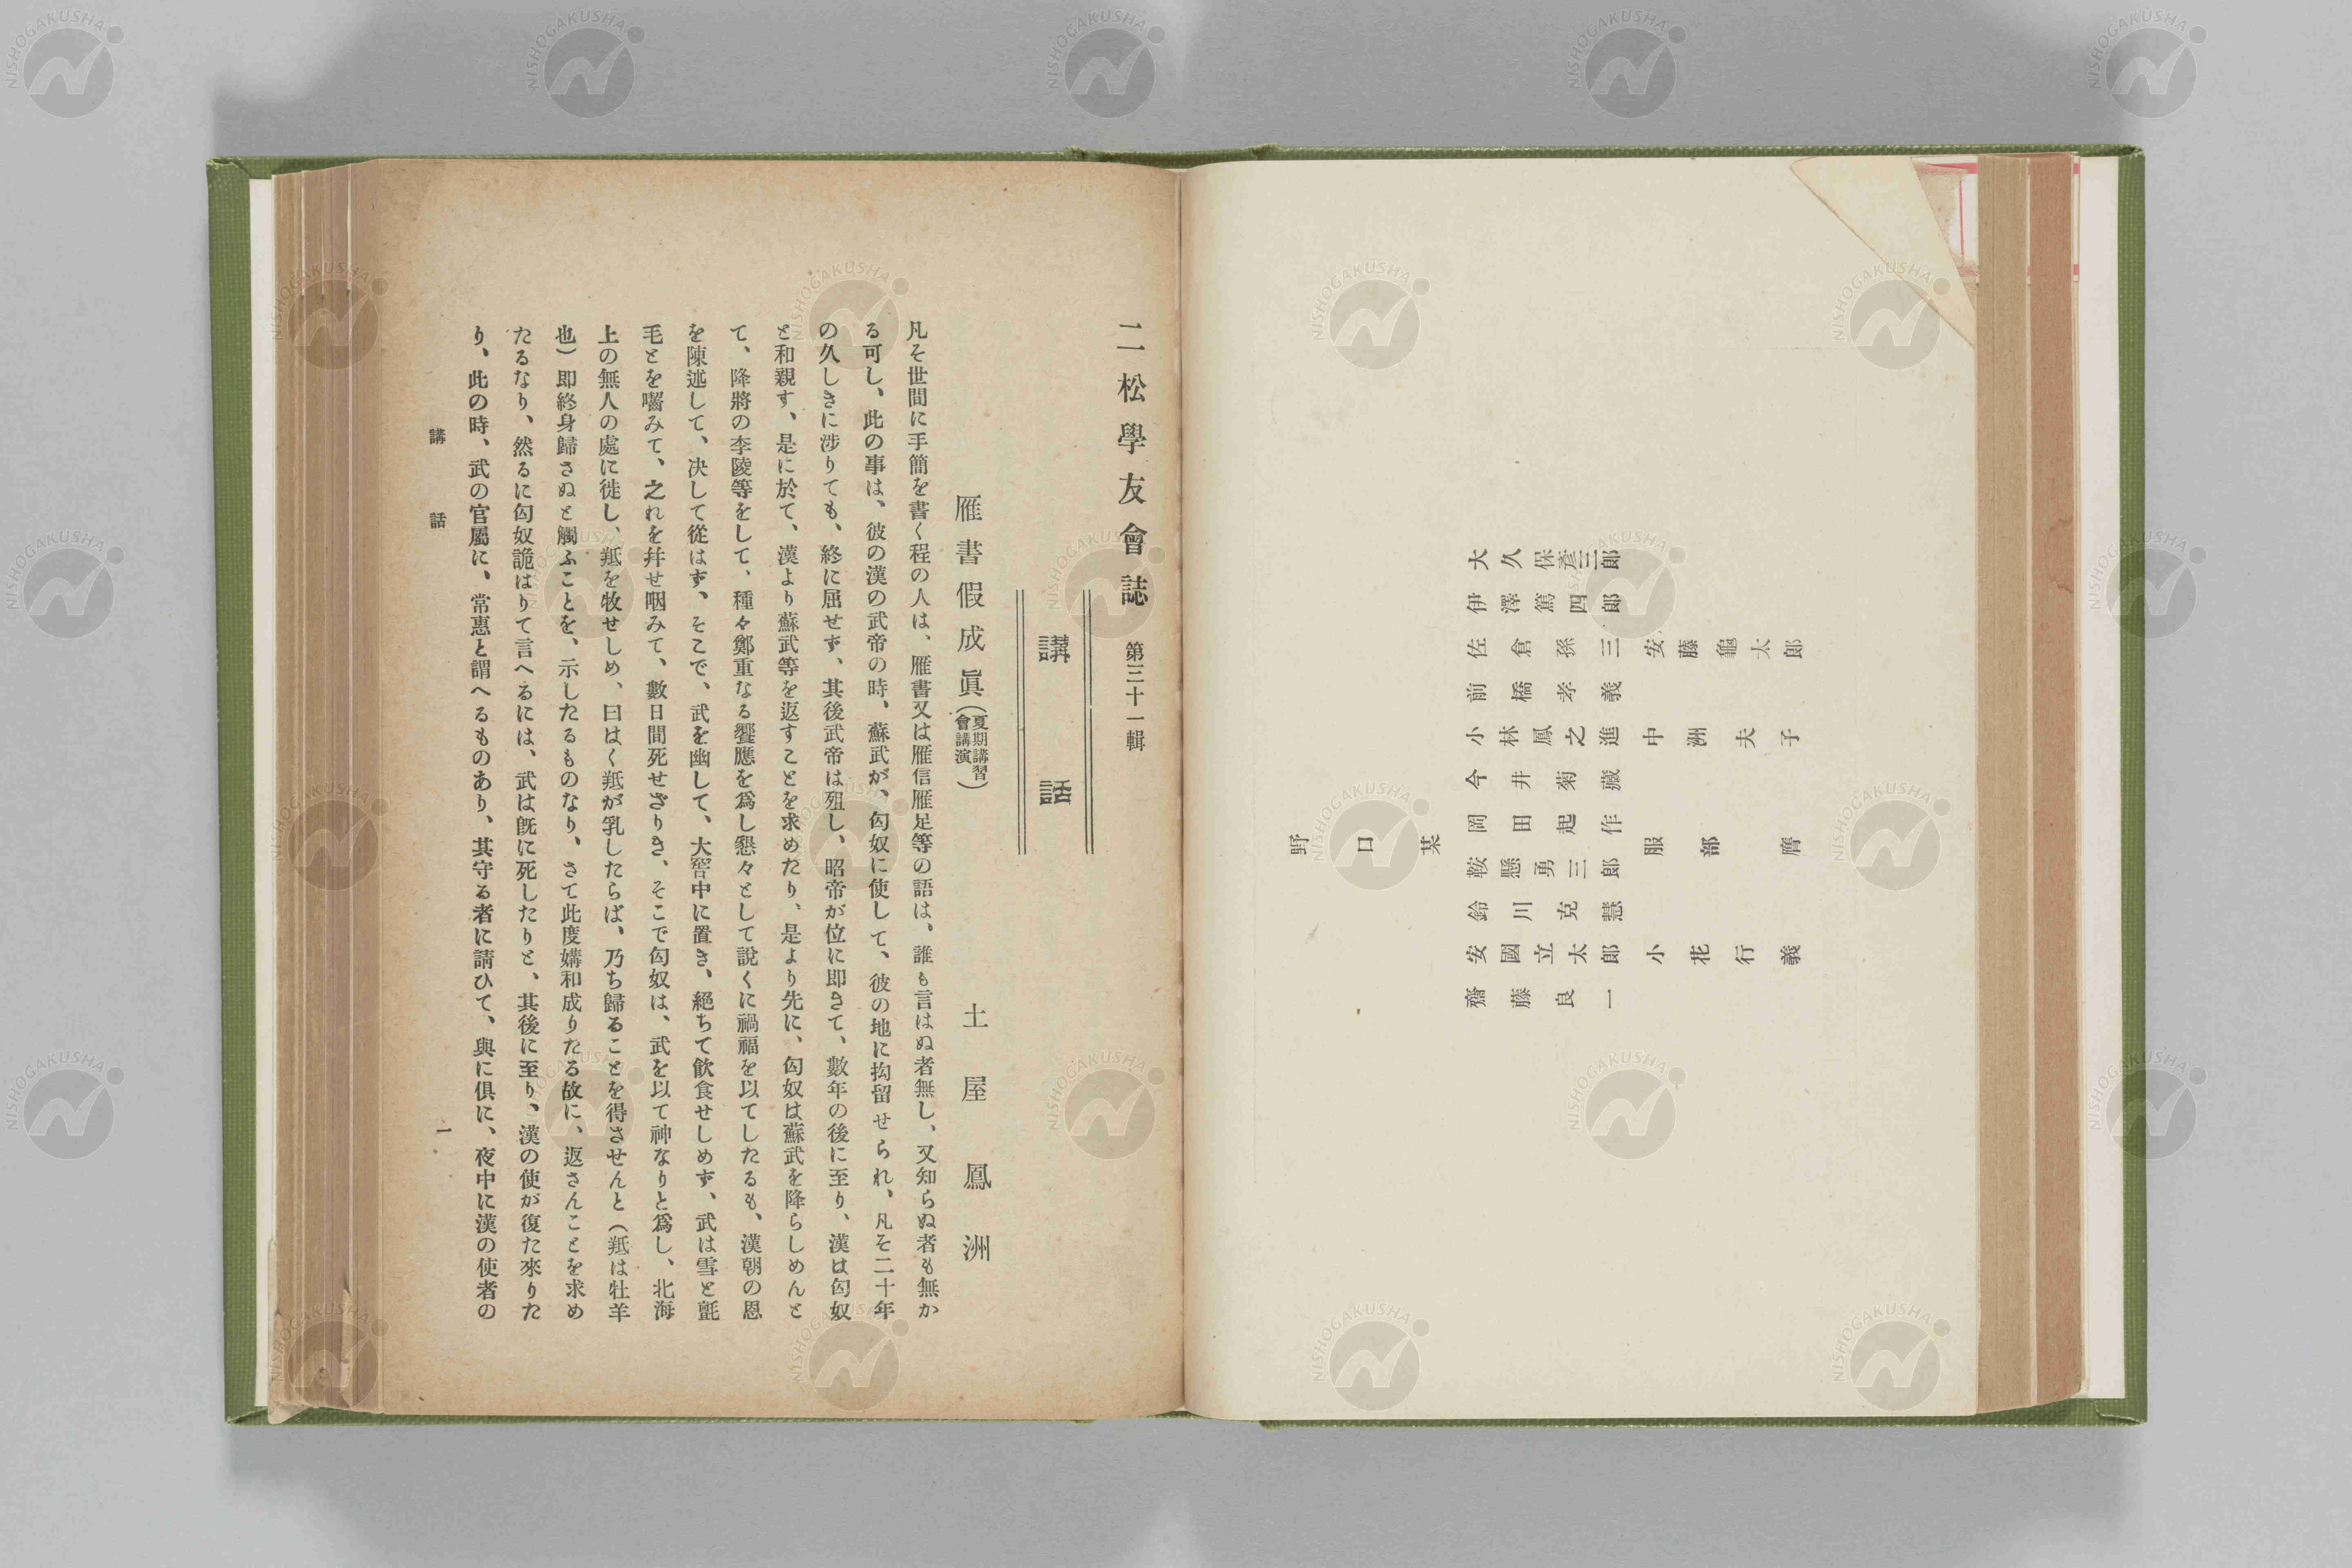 野口某
大久保彥三郎
伊澤篤四郎
佐倉孫三
前橋孝義
小林鳳之進
今井菊藏
岡田起作
鞍懸勇三郎
鈴川克慧
安國立太郎
齋藤良一
安藤龜太郎
中洲夫子
服部膺
小花行義
二松學友會誌 第三十一輯
講話
雁書假成眞(夏期講習會講演)
土屋鳳洲
凡そ世間に手簡を書く程の人は、雁書又は雁信雁足等の語は、誰も言はぬ者無し、又知らぬ者も無か
る可し、此の事は、彼の漢の武帝の時、蘇武が、匈奴に使して、彼の地に拘留せられ、凡そ二十年
の久しきに涉りても、終に屈せず、其後武帝は殂し、昭帝が位に即きて、數年の後に至り、漢は匈奴
と和親す、是に於て、漢より蘇武等を返すことを求めたり、是より先に、匈奴は蘇武を降らしめんと
て、降將の李陵等をして、種々鄭重なる饗應を爲し懇々として說くに禍福を以てしたるも、漢朝の恩
を陳述して、決して從はず、そこで、武を幽して、大窖中に置き、絕ちて飮食せしめず、武は雪と氈
毛とを囓みて、之れを幷せ咽みて、數日間死せざりき、そこで匈奴は、武を以て神なりと爲し、北海
上の無人の處に徙し、羝を牧せしめ、曰はく羝が乳したらば、乃ち歸ることを得させんと(羝は牡羊
也)即終身歸さぬと觸ふことを、示したるものなり、さて此度媾和成りたる故に、返さんことを求め
たるなり、然るに匈奴詭はりて言へるには、武は旣に死したりと、其後に至り、漢の使が復た來りた
り、此の時、武の官屬に、常惠と謂へるものあり、其守る者に請ひて、與に俱に、夜中に漢の使者の
講話
一